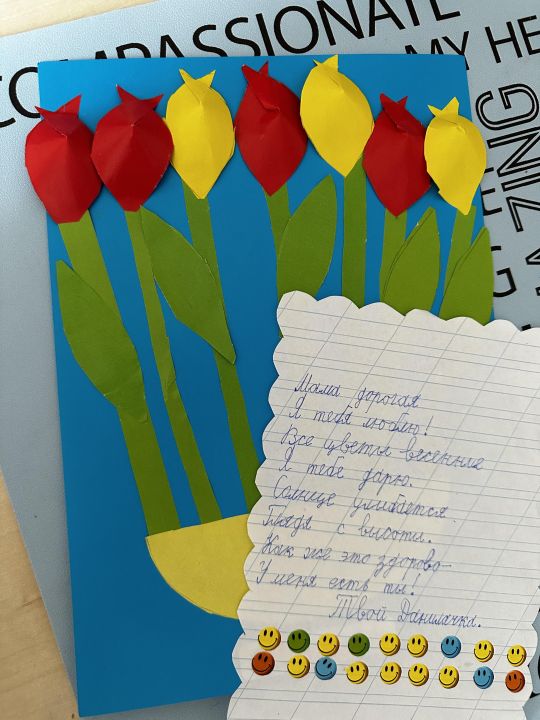 COMPASSIONATE
MY HE
AZING
Мама дорогая
Я тебя люблю!
Все цветы весенние
Я тебе дарю.
Солнце улибается
Глядя с висоти.
Как же это здорово-
У меня есть ты!
Твой Данилачка.